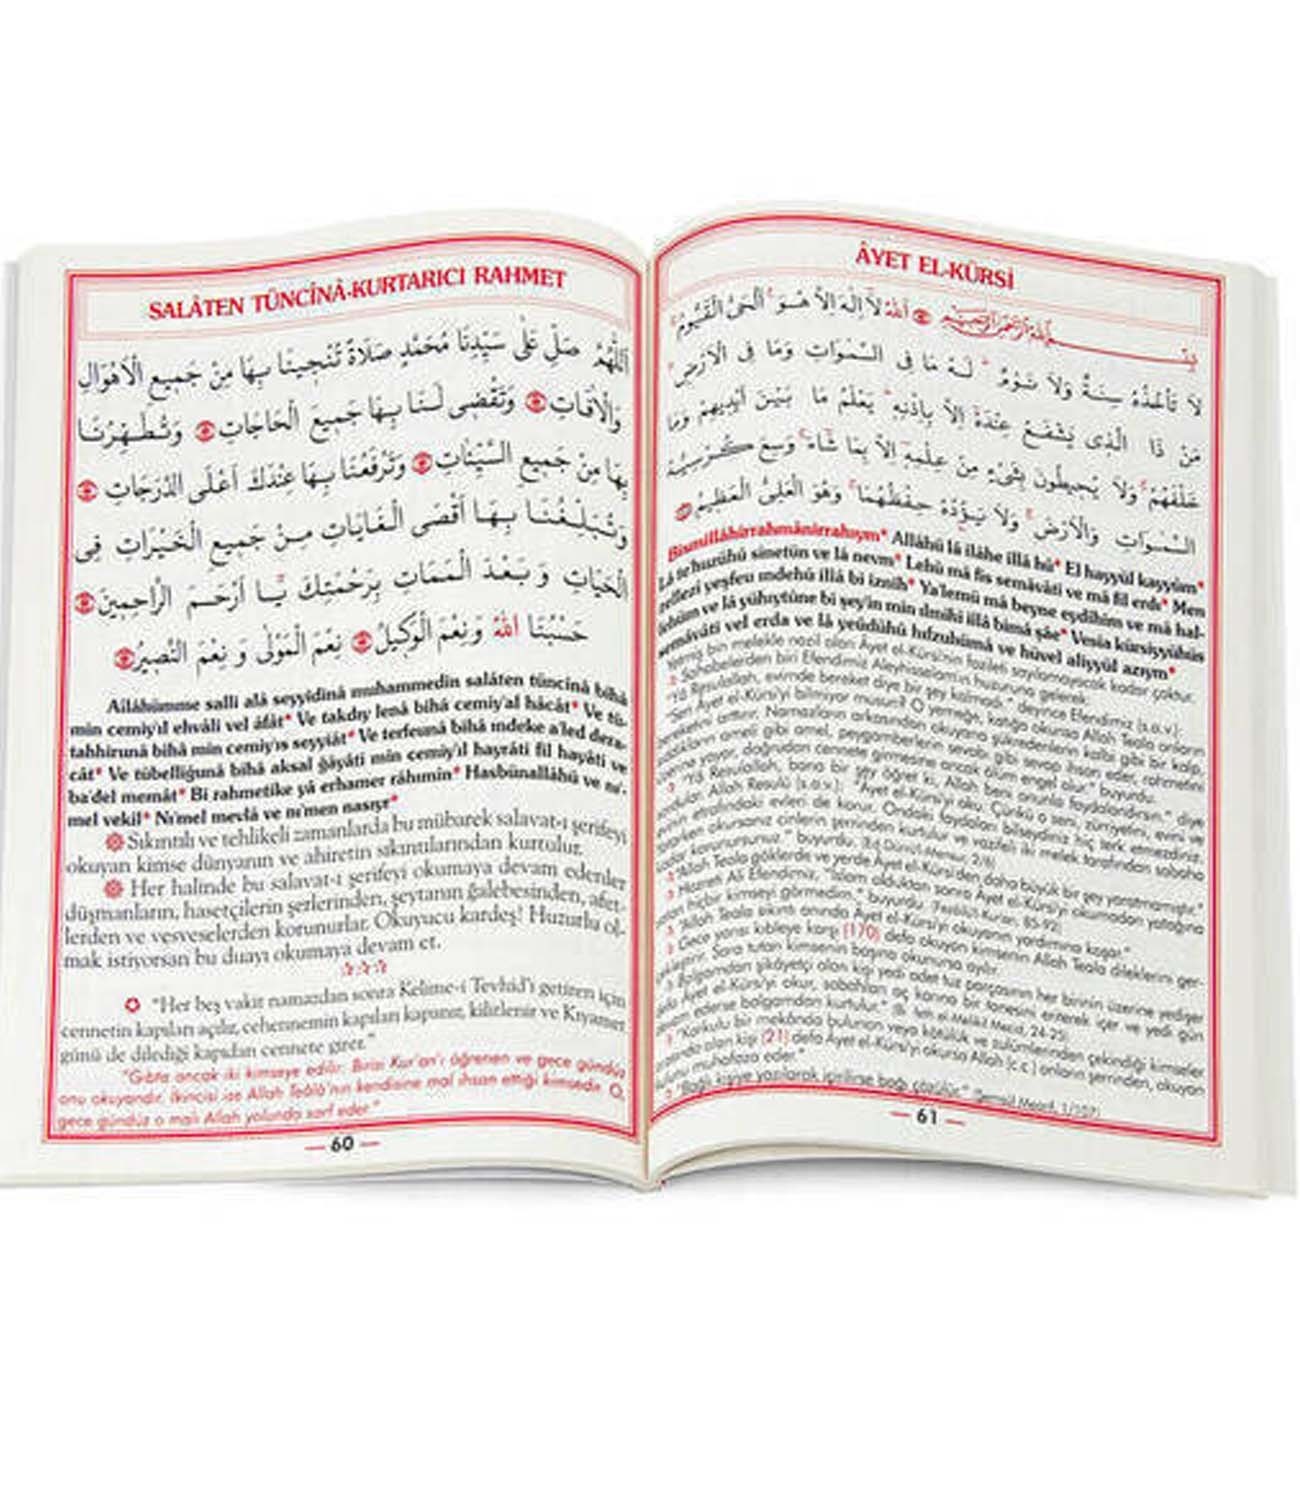 SALÂTEN TÜNCÎNÂ-KURTARICI RAHMET
اَللّٰهُمَّ صَلِّ عَلٰى سَيِّدِنَا مُحَمَّدٍ صَلَاةً تُنْجِينَا بِهَا مِنْ جَمِيعِ الْاَهْوَالِ
وَالْاٰفَاتِ وَتَقْضِى لَنَا بِهَا جَمِيعَ الْحَاجَاتِ وَتُطَهِّرُنَا
بِهَا مِنْ جَمِيعِ السَّيِّئَاتِ وَتَرْفَعُنَا بِهَا عِنْدَكَ اَعْلَى الدَّرَجَاتِ
وَتُبَلِّغُنَا بِهَا اَقْصَى الْغَايَاتِ مِنْ جَمِيعِ الْخَيْرَاتِ فِى
الْحَيَاتِ وَ بَعْدَ الْمَمَاتِ بِرَحْمَتِكَ يَٓا اَرْحَمَ الرَّاحِمِينَ
حَسْبُنَا اللّٰهُ وَنِعْمَ الْوَكِيلُ نِعْمَ الْمَوْلٰى وَ نِعْمَ النَّصِيرُ
Allâhümme salli alâ seyyidinâ muhammedin salâten tüncînâ bihâ
min cemiy'ıl ehvâli vel âfât* Ve takdıy lenâ bihâ cemiy'al hâcât* Ve tü-
tahhirunâ bihâ min cemiy'ıs seyyiât* Ve terfeunâ bihâ ındeke a'led dera-
cât* Ve tübelliğunâ bihâ aksal ğâyâti min cemiy'ıl hayrâti fil hayâti ve
ba'del memât* Bi rahmetike yâ erhamer râhımîn* Hasbünallâhü ve nı'-
mel vekîl* Nı'mel mevlâ ve nı'men nasıyr*
Sıkıntılı ve tehlikeli zamanlarda bu mübarek salavat-ı şerifeyi
okuyan kimse dünyanın ve ahiretin sıkıntılarından kurtulur.
Her halinde bu salavat-ı şerifeyi okumaya devam edenler
düşmanların, hasetçilerin şerlerinden, şeytanın ğalebesinden, afet-
lerden ve vesveselerden korunurlar. Okuyucu kardeş! Huzurlu ol-
mak istiyorsan bu duayı okumaya devam et.
"Her beş vakit namazdan sonra Kelime-i Tevhid'i getiren için
cennetin kapıları açılır, cehennemin kapıları kapanır, kilitlenir ve Kıyamet
günü de dilediği kapıdan cennete girer."
"Gıbta ancak iki kimseye edilir: Birisi Kur'an'ı öğrenen ve gece gündüz
onu okuyandır. İkincisi ise Allah Teâlâ'nın kendisine mal ihsan ettiği kimsedir. O,
gece gündüz o malı Allah yolunda sarf eder."
— 60 —
ÂYET EL-KÜRSİ
بِسْمِ اللّٰهِ الرَّحْمٰنِ الرَّحِيمِ اَللّٰهُ لَٓا اِلٰهَ اِلَّا هُوَ اَلْحَىُّ الْقَيُّومُ
لَا تَأْخُذُهُ سِنَةٌ وَلَا نَوْمٌ لَهُ مَا فِى السَّمٰوَاتِ وَمَا فِى الْاَرْضِ
مَنْ ذَا الَّذِى يَشْفَعُ عِنْدَهُٓ اِلَّا بِاِذْنِهِ يَعْلَمُ مَا بَيْنَ اَيْدِيهِمْ وَمَا
خَلْفَهُمْ وَلَا يُحِيطُونَ بِشَىْءٍ مِنْ عِلْمِهِٓ اِلَّا بِمَا شَٓاءَ وَسِعَ كُرْسِيُّهُ
السَّمٰوَاتِ وَالْاَرْضَ وَلَا يَؤُدُهُ حِفْظُهُمَا وَهُوَ الْعَلِىُّ الْعَظِيمُ
Bismillâhirrahmânirrahıym* Allâhü lâ ilâhe illâ hû* El hayyül kayyûm*
Lâ te'huzühû sinetün ve lâ nevm* Lehû mâ fis semâvâti ve mâ fil erdı* Men
zellezî yeşfeu ındehû illâ bi iznih* Ya'lemü mâ beyne eydîhim ve mâ hal-
fehüm ve lâ yühıytûne bi şey'in min ılmihî illâ bimâ şâe* Vesia kürsiyyühüs
semâvâti vel erda ve lâ yeûdühû hıfzuhümâ ve hüvel aliyyül azıym*
Yetmiş bin melekle nazil olan Âyet el-Kürsi'nin fazileti sayılamayacak kadar çoktur.
Sahabelerden biri Efendimiz Aleyhisselam'ın huzuruna gelerek:
"Yâ Resulallah, evimde bereket diye bir şey kalmadı." deyince Efendimiz (s.a.v.):
"Sen Âyet el-Kürsi'yi bilmiyor musun? O yemeğe, katığa okursa Allah Teala onların
bereketini arttırır. Namazların arkasından okuyana şükredenlerin kalbi gibi bir kalp,
sadıkların ameli gibi amel, peygamberlerin sevabı gibi sevap ihsan eder, rahmetini
üzerine yayar, doğrudan cennete girmesine ancak ölüm engel olur." buyurdu.
"Yâ Resulallah, bana bir şey öğret ki, Allah beni onunla faydalandırsın." diye
Allah Resulü (s.a.v.): "Âyet el-Kürsi'yi oku. Çünkü o seni, zürriyetini, evini ve
evinin etrafındaki evleri de korur. Ondaki faydaları bilseydiniz hiç terk etmezdiniz.
Yatarken okursanız cinlerin şerrinden kurtulur ve vazifeli iki melek tarafından sabaha
kadar korunursunuz." buyurdu. (Ed Dürrü'l-Mensur, 2/6)
"Allah Teala göklerde ve yerde Âyet el-Kürsi'den daha büyük bir şey yaratmamıştır."
Hazreti Ali Efendimiz, "İslam olduktan sonra Âyet el-Kürsi'yi okumadan yatağına
yatan hiçbir kimseyi görmedim." buyurdu. (Fezailü'l-Kur'an, 85-92)
"Allah Teala sıkıntı anında Âyet el-Kürsi'yi okuyanın yardımına koşar."
Gece yarısı kıbleye karşı (170) defa okuyan kimsenin Allah Teala dileklerini ger-
çekleştirir. Sara tutan kimsenin başına okunursa ayılır.
Balgamdan şikâyetçi olan kişi yedi adet tuz parçasının her birinin üzerine yedişer
defa Âyet el-Kürsi'yi okur, sabahları aç karına bir tanesini eriterek içer ve yedi gün
devam ederse balgamdan kurtulur."
"Korkulu bir mekânda bulunan veya kötülük ve zulümlerinden çekindiği kimseler
arasında olan kişi (21) defa Âyet el-Kürsi'yi okursa Allah (c.c.) onların şerrinden, okuyan
kulunu muhafaza eder."
"Bağlı kişiye yazılarak içirilirse bağı çözülür."
— 61 —